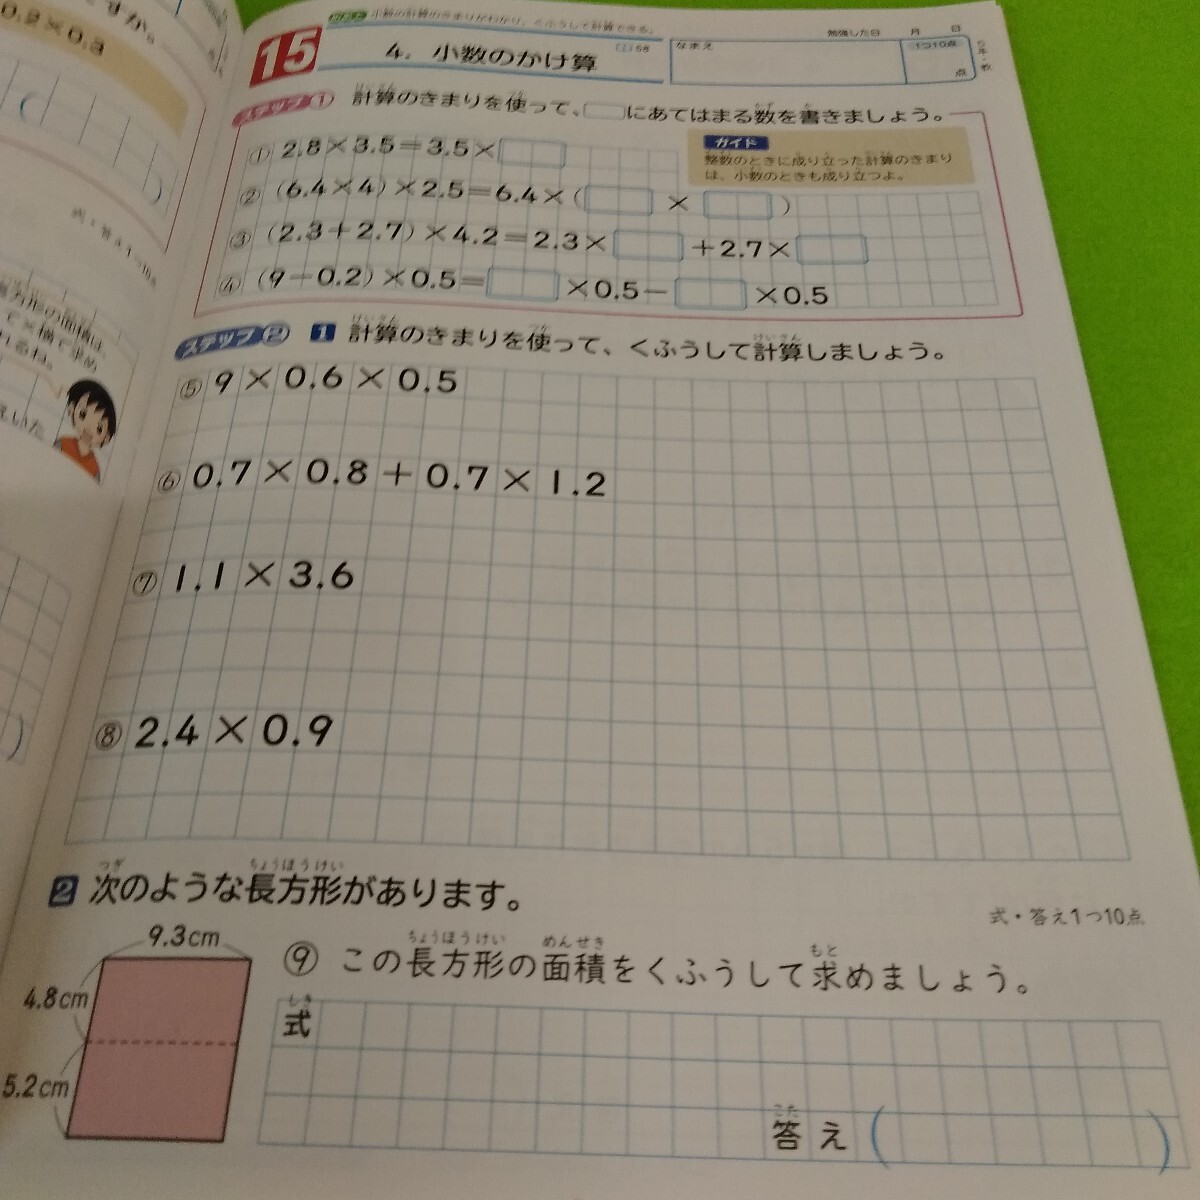 すか。
0.2×0.3
式・答え1つ10点
長方形の面積は、
て×横で求め
れるね。
えいた
15
小数の計算のきまりがわかり、くふうして計算できる。
4. 小数のかけ算
58
なまえ
勉強した日 月 日
1つ10点
点
ステップ1 計算のきまりを使って、□にあてはまる数を書きましょう。
ガイド
整数のときに成り立った計算のきまり
は、小数のときも成り立つよ。
① 2.8×3.5=3.5×□
② (6.4×4)×2.5=6.4×(□×□)
③ (2.3+2.7)×4.2=2.3×□+2.7×□
④ (9−0.2)×0.5=□×0.5−□×0.5
ステップ2 1 計算のきまりを使って、くふうして計算しましょう。
⑤ 9×0.6×0.5
⑥ 0.7×0.8+0.7×1.2
⑦ 1.1×3.6
⑧ 2.4×0.9
2 次のような長方形があります。
式・答え1つ10点
9.3cm
4.8cm
5.2cm
⑨ この長方形の面積をくふうして求めましょう。
式
答え( )